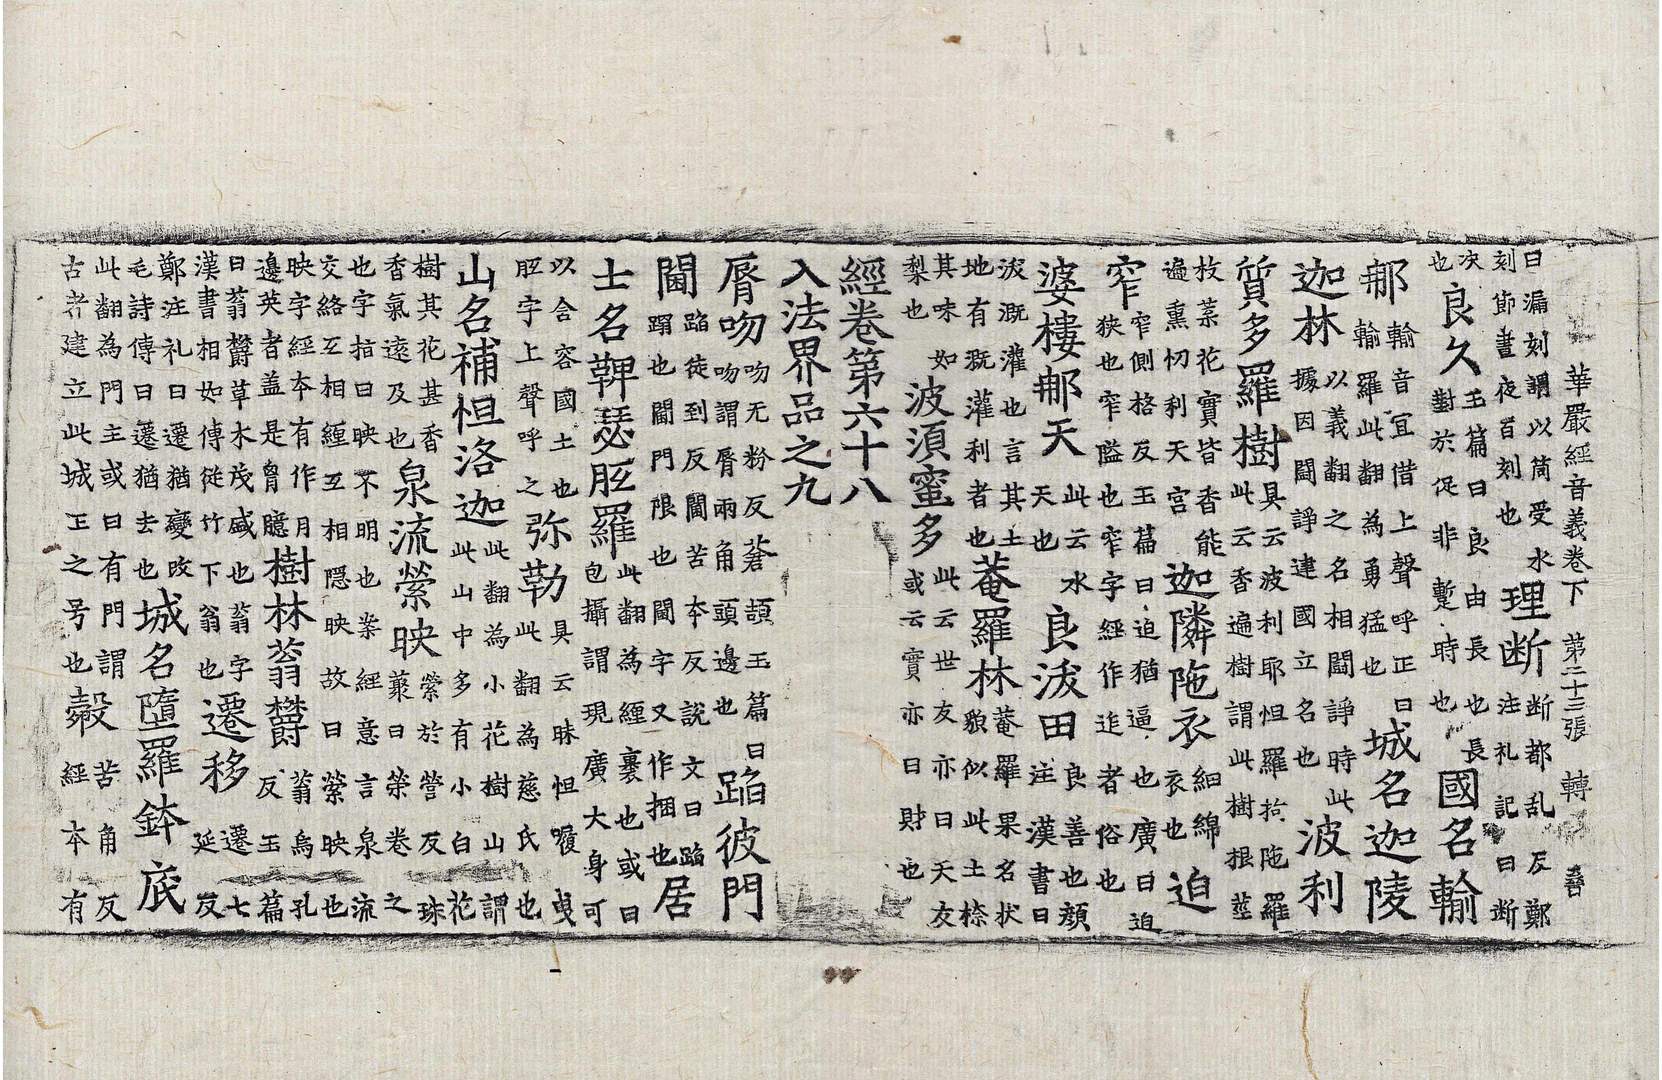 華嚴經音義卷下 第二十三張 轉
曰漏刻謂以筒受水刻節晝夜百刻也理断断都乱反鄭注礼記曰断
决也良久玉篇曰良由長也長對於促非蹔時也國名輸
那輸音宜借上聲呼正曰輸羅此翻為勇猛也城名迦陵
迦林以義翻之名相鬪諍時此據因鬪諍建國立名也波利
質多羅樹具云波利耶怛羅拘陁羅此云香遍樹謂此樹根莖
枝菜花實皆香能遍熏忉利天宮迦隣陁衣細綿衣也迫
窄窄側格反玉篇曰迫猶逼也廣曰迫狹也窄隘也窄字經作迮者俗也
婆樓那天此云水天也良沃田良善也顔注漢書曰
沃溉灌也言其土地有溉灌利者也菴羅林菴羅果名状貌似此土㮈
其味如梨也波須蜜多此云世友亦曰天友或云實亦曰財也
經卷第六十八
入法界品之九
脣吻吻无粉反蒼頡玉篇曰吻謂脣兩角頭邊也蹈彼門
閫蹈徒到反閫苦本反說文曰蹈蹋也閫門限也閫字又作梱也居
士名鞞瑟胝羅此翻為纏裹也或曰包攝謂現廣大身可
以含容國土也胝字上聲呼之弥勒具云昧怛㘑曳此翻為慈氏也
山名補怛洛迦此翻為小花樹山謂此山中多有小白花
樹其花甚香香氣遠及也泉流縈映縈於營反珠叢曰縈卷之
也字指曰映不明也案經意言泉流交絡互相纏互相隱映故曰縈映也
映字經本有作月邊英者蓋是曾臆樹林蓊欝蓊烏孔反玉篇
曰蓊欝草木茂盛也蓊字漢書相如傳從竹下翁也遷移遷七延反
鄭注礼曰遷猶變攺毛詩傳曰遷猶去也城名墮羅鉢底
此翻為門主或曰有門謂古者建立此城王之号也㲉苦角反經本有